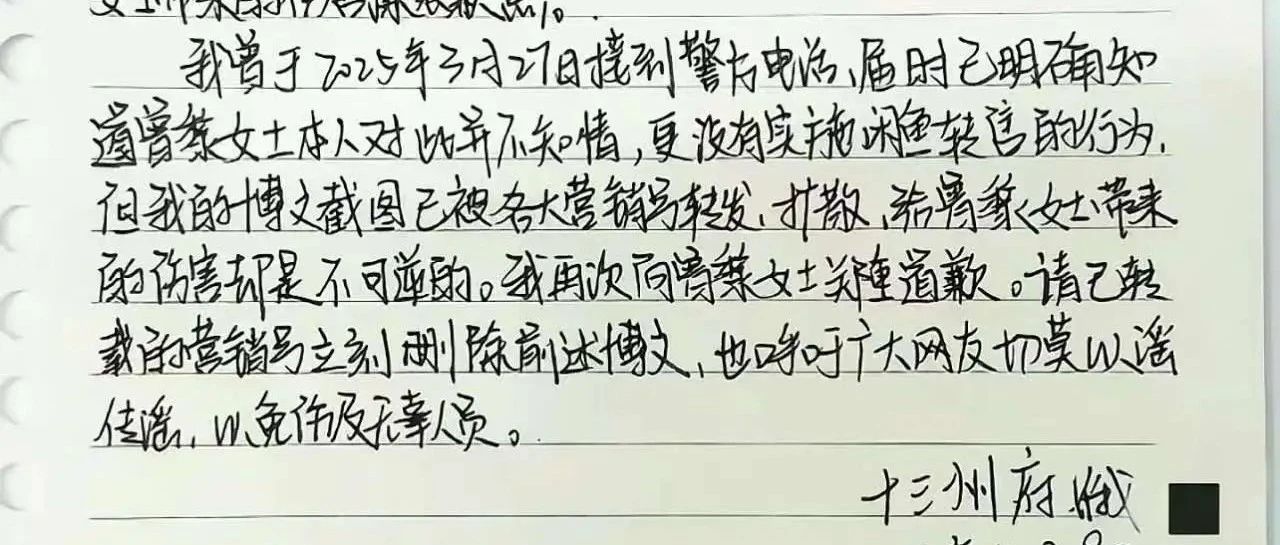 我曾于2025年3月27日接到警方电话,届时已明确知
道曾黎女士本人对此并不知情,更没有实施闲鱼转售的行为,
但我的博文截图已被各大营销号转发、扩散,给曾黎女士带来
的伤害却是不可逆的。我再次向曾黎女士郑重道歉。请已转
载的营销号立刻删除前述博文,也呼吁广大网友切莫以谣
传谣,以免伤及无辜人员。
十三州府